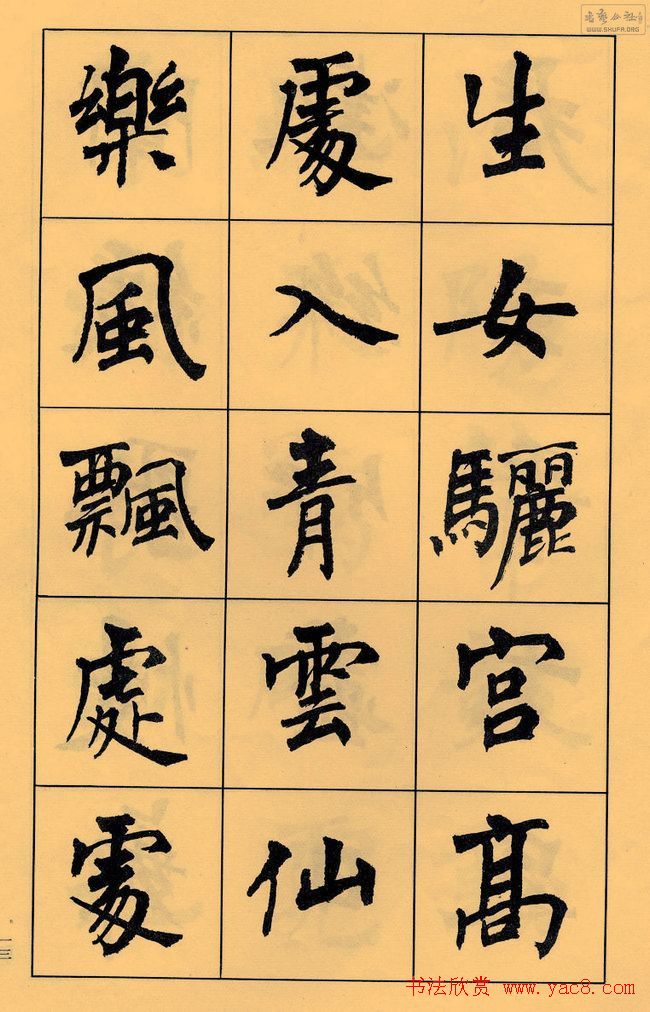 生女驪宮高
處入青雲仙
樂風飄處處
一三
书艺公社
WWW.SHUFA.ORG
书法欣赏 www.yac8.com